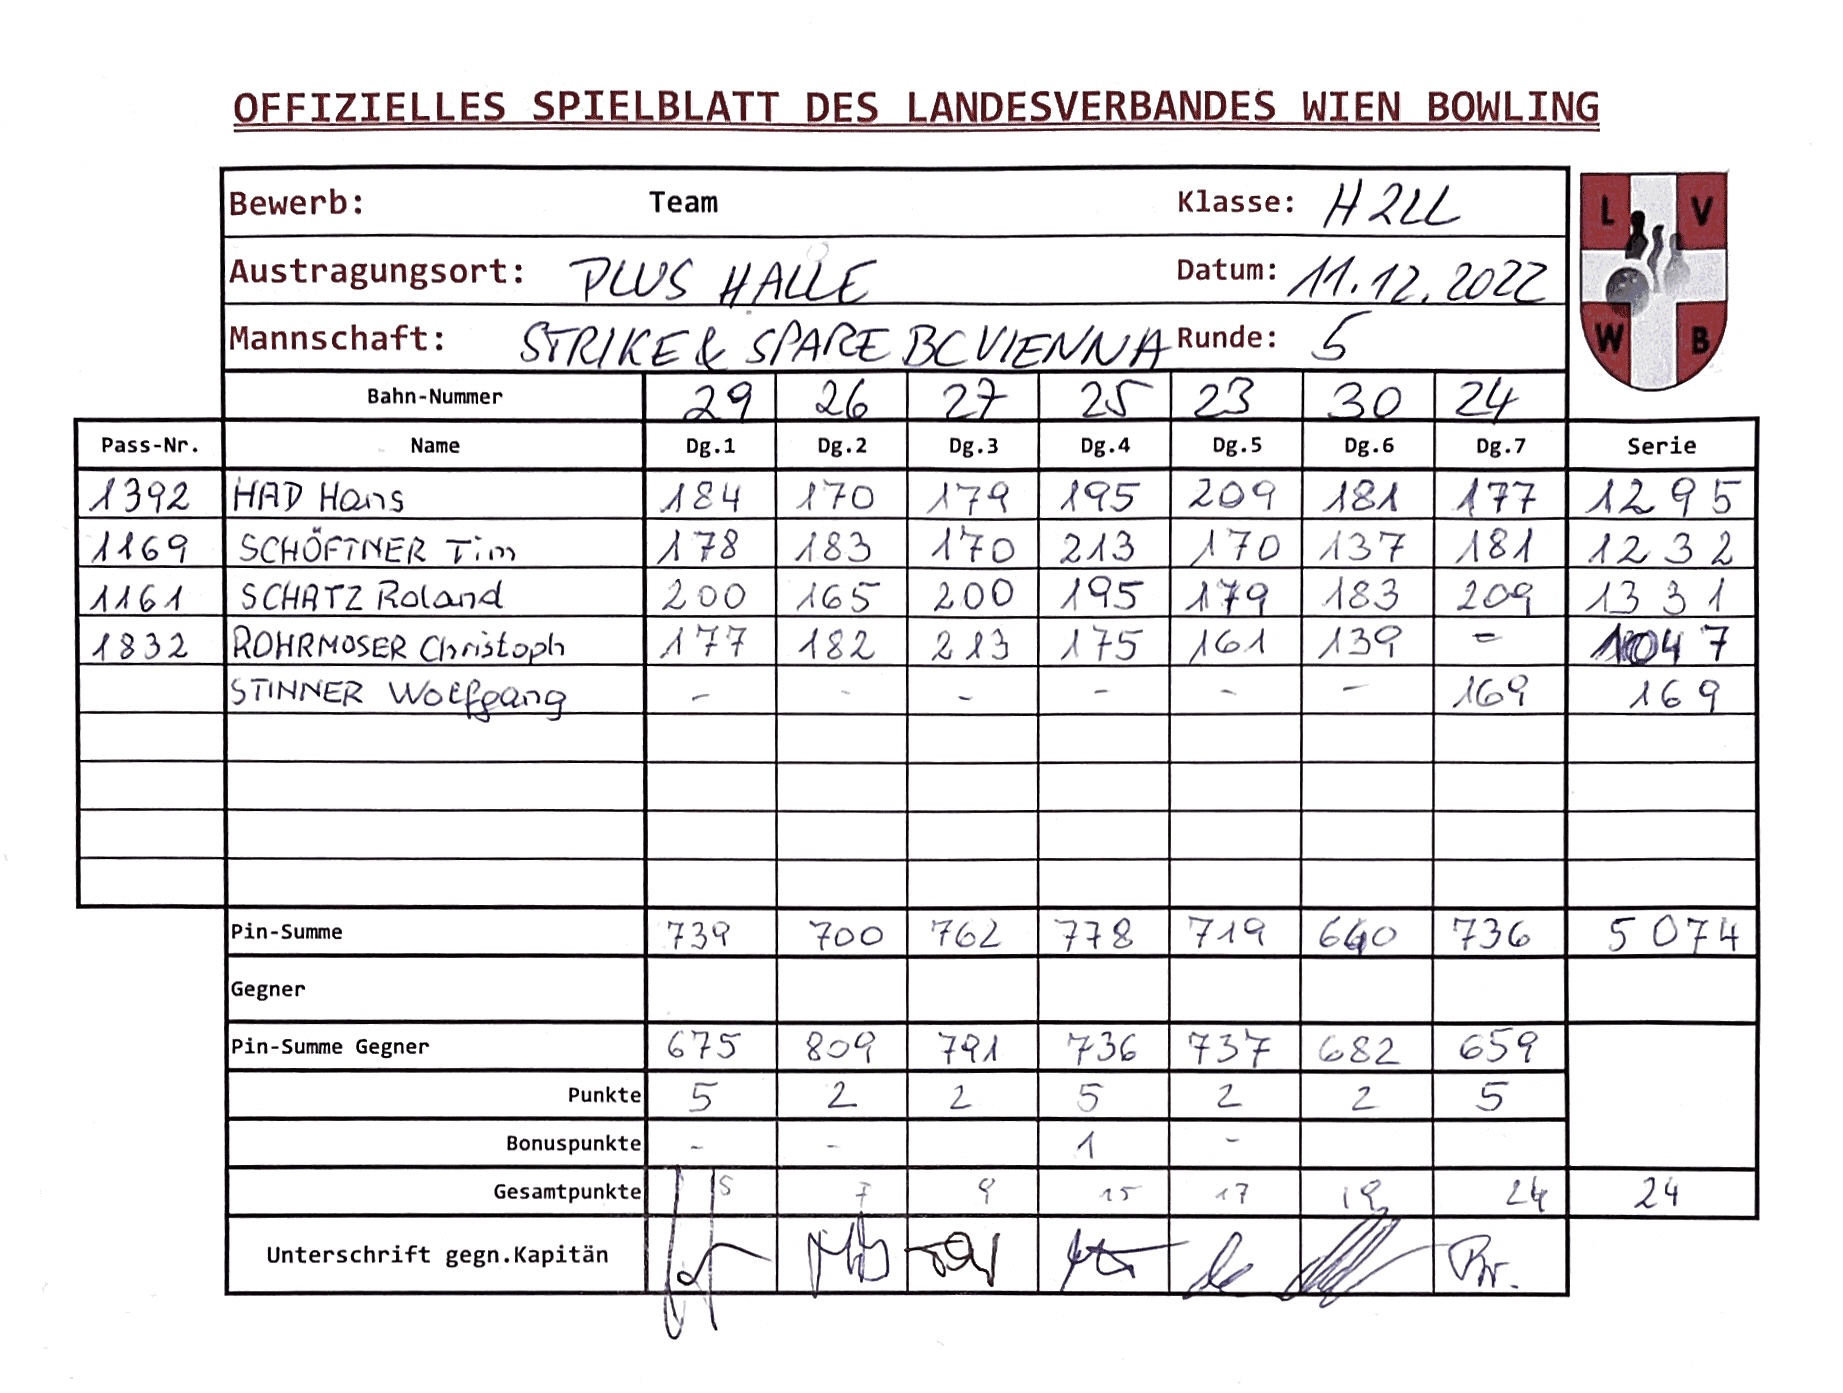 OFFIZIELLES SPIELBLATT DES LANDESVERBANDES WIEN BOWLING
Bewerb: Team Klasse: H2LL
L V
Austragungsort: PLUS HALLE Datum: 11.12.2022
Mannschaft: STRIKE & SPARE BC VIENNA Runde: 5
W B
Bahn-Nummer 29 26 27 25 23 30 24
Pass-Nr. Name Dg.1 Dg.2 Dg.3 Dg.4 Dg.5 Dg.6 Dg.7 Serie
1392 HAD Hans 184 170 179 195 209 181 177 1295
1169 SCHÖFTNER Tim 178 183 170 213 170 137 181 1232
1161 SCHATZ Roland 200 165 200 195 179 183 209 1331
1832 ROHRMOSER Christoph 177 182 213 175 161 139 - 1047
STINNER Wolfgang - - - - - - 169 169
Pin-Summe 739 700 762 778 719 640 736 5074
Gegner
Pin-Summe Gegner 675 809 791 736 737 682 659
Punkte 5 2 2 5 2 2 5
Bonuspunkte - - 1 -
Gesamtpunkte 5 7 9 15 17 19 24 24
Unterschrift gegn.Kapitän